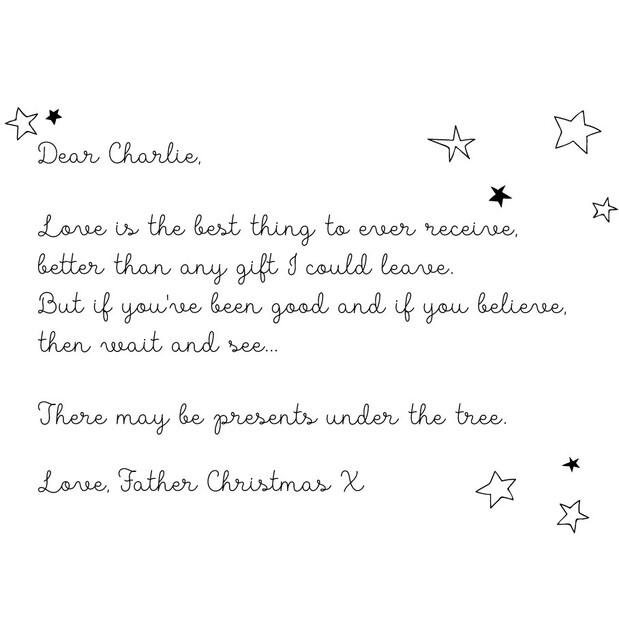 Dear Charlie,
Love is the best thing to ever receive,
better than any gift I could leave.
But if you've been good and if you believe,
then wait and see...
There may be presents under the tree.
Love, Father Christmas X